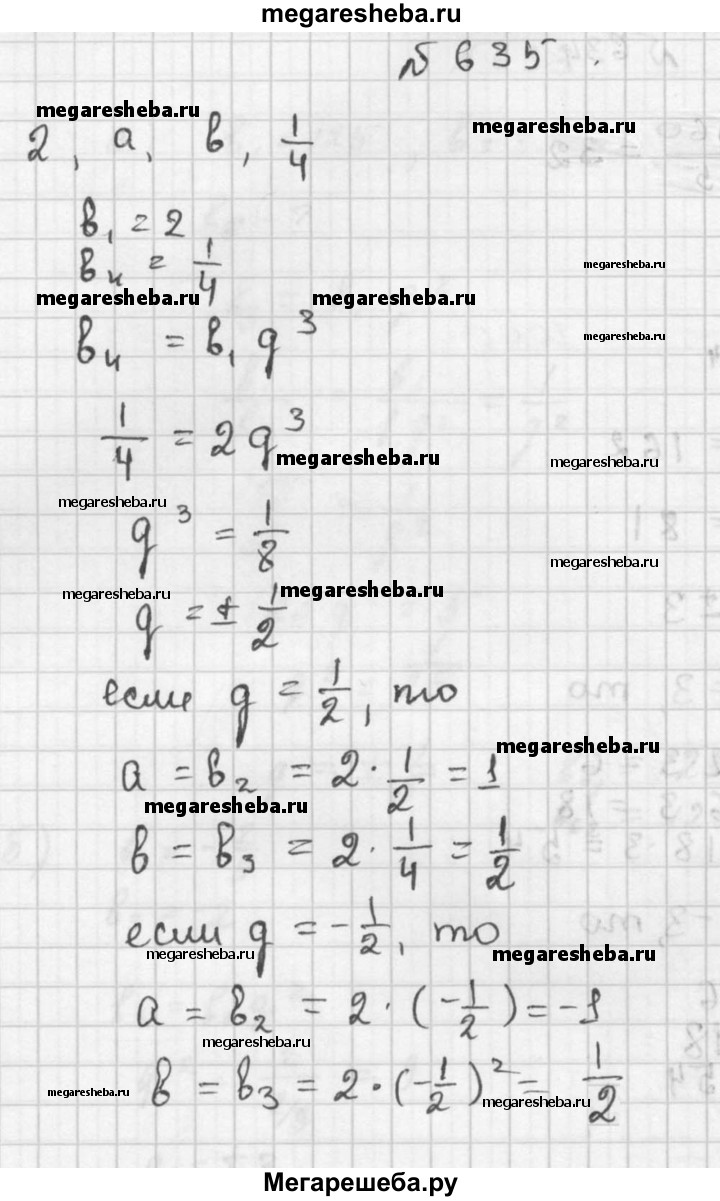 megaresheba.ru
№ 635.
megaresheba.ru
megaresheba.ru
2, a, b, 1/4
b₁ = 2
megaresheba.ru
b₄ = 1/4
megaresheba.ru megaresheba.ru
b₄ = b₁ q³
megaresheba.ru
1/4 = 2q³
megaresheba.ru
megaresheba.ru
megaresheba.ru
q³ = 1/8
megaresheba.ru
megaresheba.ru
megaresheba.ru
q = ± 1/2
если q = 1/2, то
megaresheba.ru
a = b₂ = 2 · 1/2 = 1
megaresheba.ru
b = b₃ = 2 · 1/4 = 1/2
если q = -1/2, то
megaresheba.ru
megaresheba.ru
a = b₂ = 2 · (-1/2) = -1
megaresheba.ru
b = b₃ = 2 · (-1/2)² = 1/2
megaresheba.ru
megaresheba.ru
Мегарешеба.ру